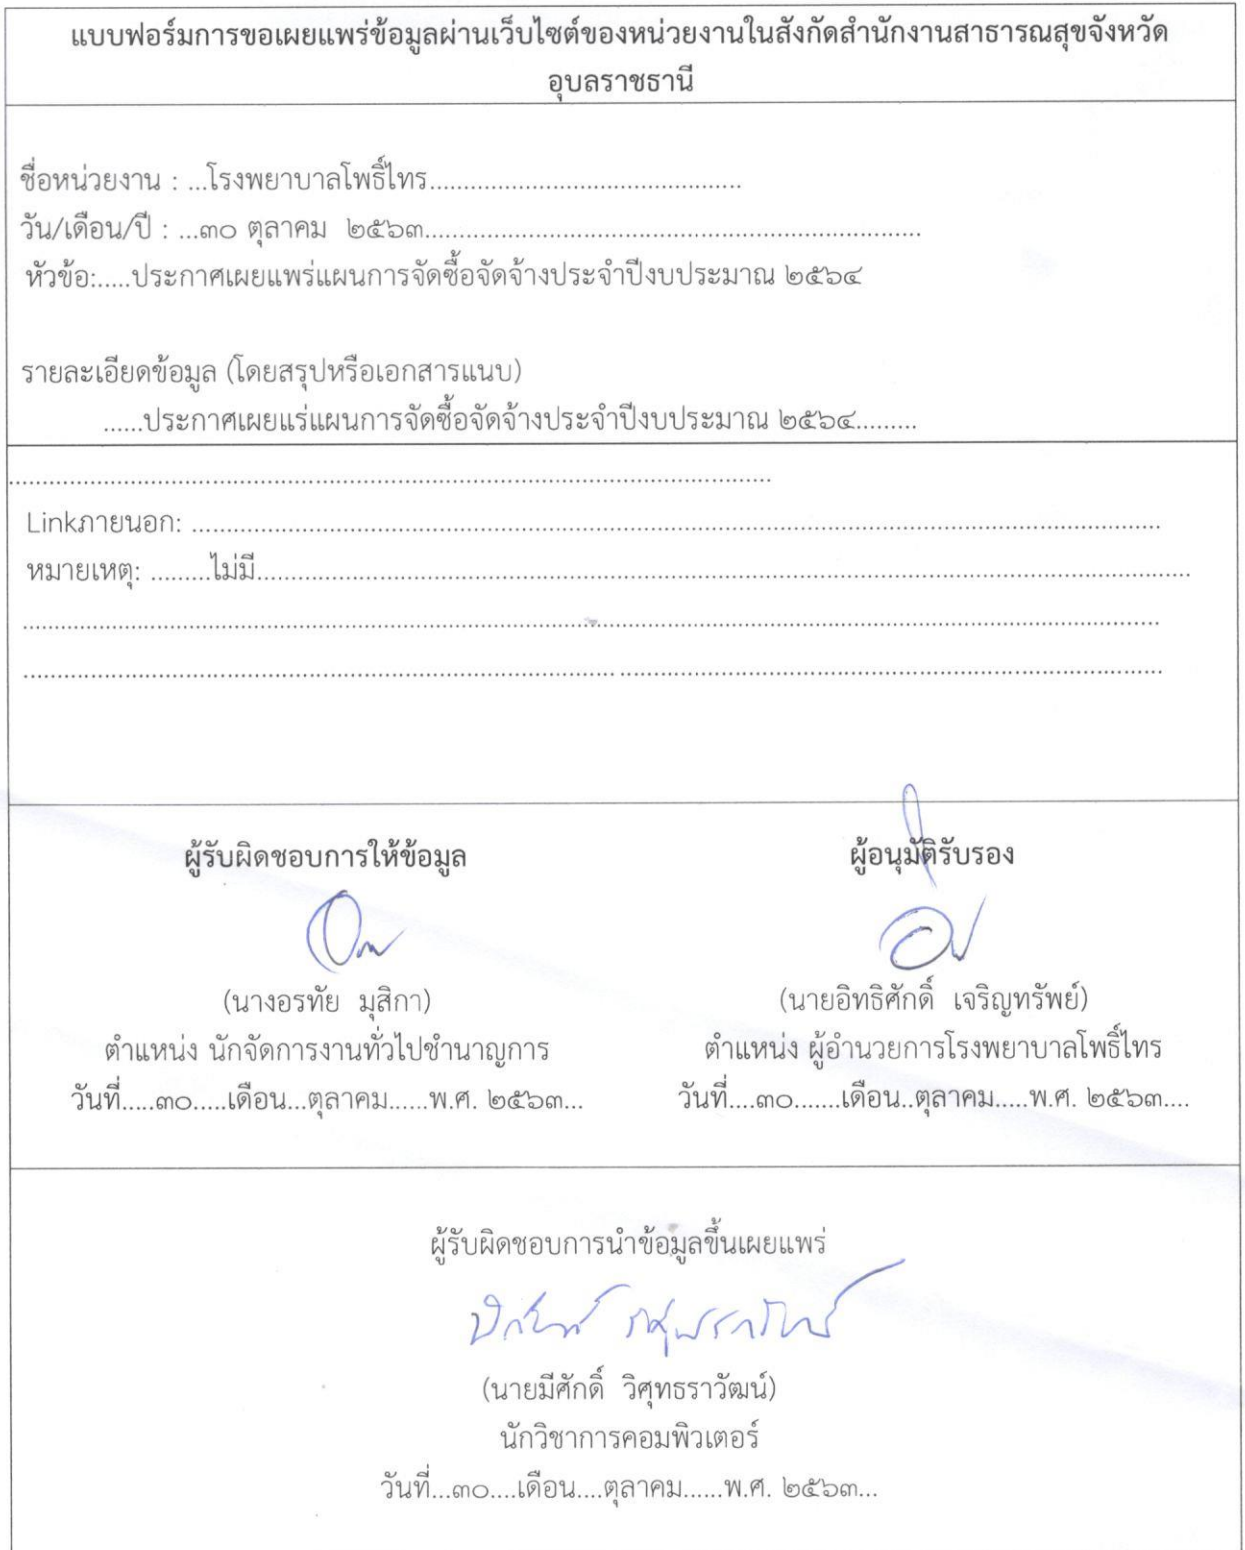 แบบฟอร์มการขอเผยแพร่ข้อมูลผ่านเว็บไซต์ของหน่วยงานในสังกัดสำนักงานสาธารณสุขจังหวัด
อุบลราชธานี
ชื่อหน่วยงาน : ...โรงพยาบาลโพธิ์ไทร.............................................
วัน/เดือน/ปี : ...๓๐ ตุลาคม ๒๕๖๓........................................................................
หัวข้อ:.....ประกาศเผยแพร่แผนการจัดซื้อจัดจ้างประจำปีงบประมาณ ๒๕๖๔
รายละเอียดข้อมูล (โดยสรุปหรือเอกสารแนบ)
......ประกาศเผยแร่แผนการจัดซื้อจัดจ้างประจำปีงบประมาณ ๒๕๖๔.........
Linkภายนอก: ................................................................................
หมายเหตุ: .........ไม่มี................................................................................
ผู้รับผิดชอบการให้ข้อมูล
ผู้อนุมัติรับรอง
(นางอรทัย มุสิกา)
(นายอิทธิศักดิ์ เจริญทรัพย์)
ตำแหน่ง นักจัดการงานทั่วไปชำนาญการ
ตำแหน่ง ผู้อำนวยการโรงพยาบาลโพธิ์ไทร
วันที่.....๓๐.....เดือน...ตุลาคม......พ.ศ. ๒๕๖๓...
วันที่....๓๐.......เดือน..ตุลาคม.....พ.ศ. ๒๕๖๓....
ผู้รับผิดชอบการนำข้อมูลขึ้นเผยแพร่
(นายมีศักดิ์ วิศุทธราวัฒน์)
นักวิชาการคอมพิวเตอร์
วันที่...๓๐....เดือน....ตุลาคม......พ.ศ. ๒๕๖๓...